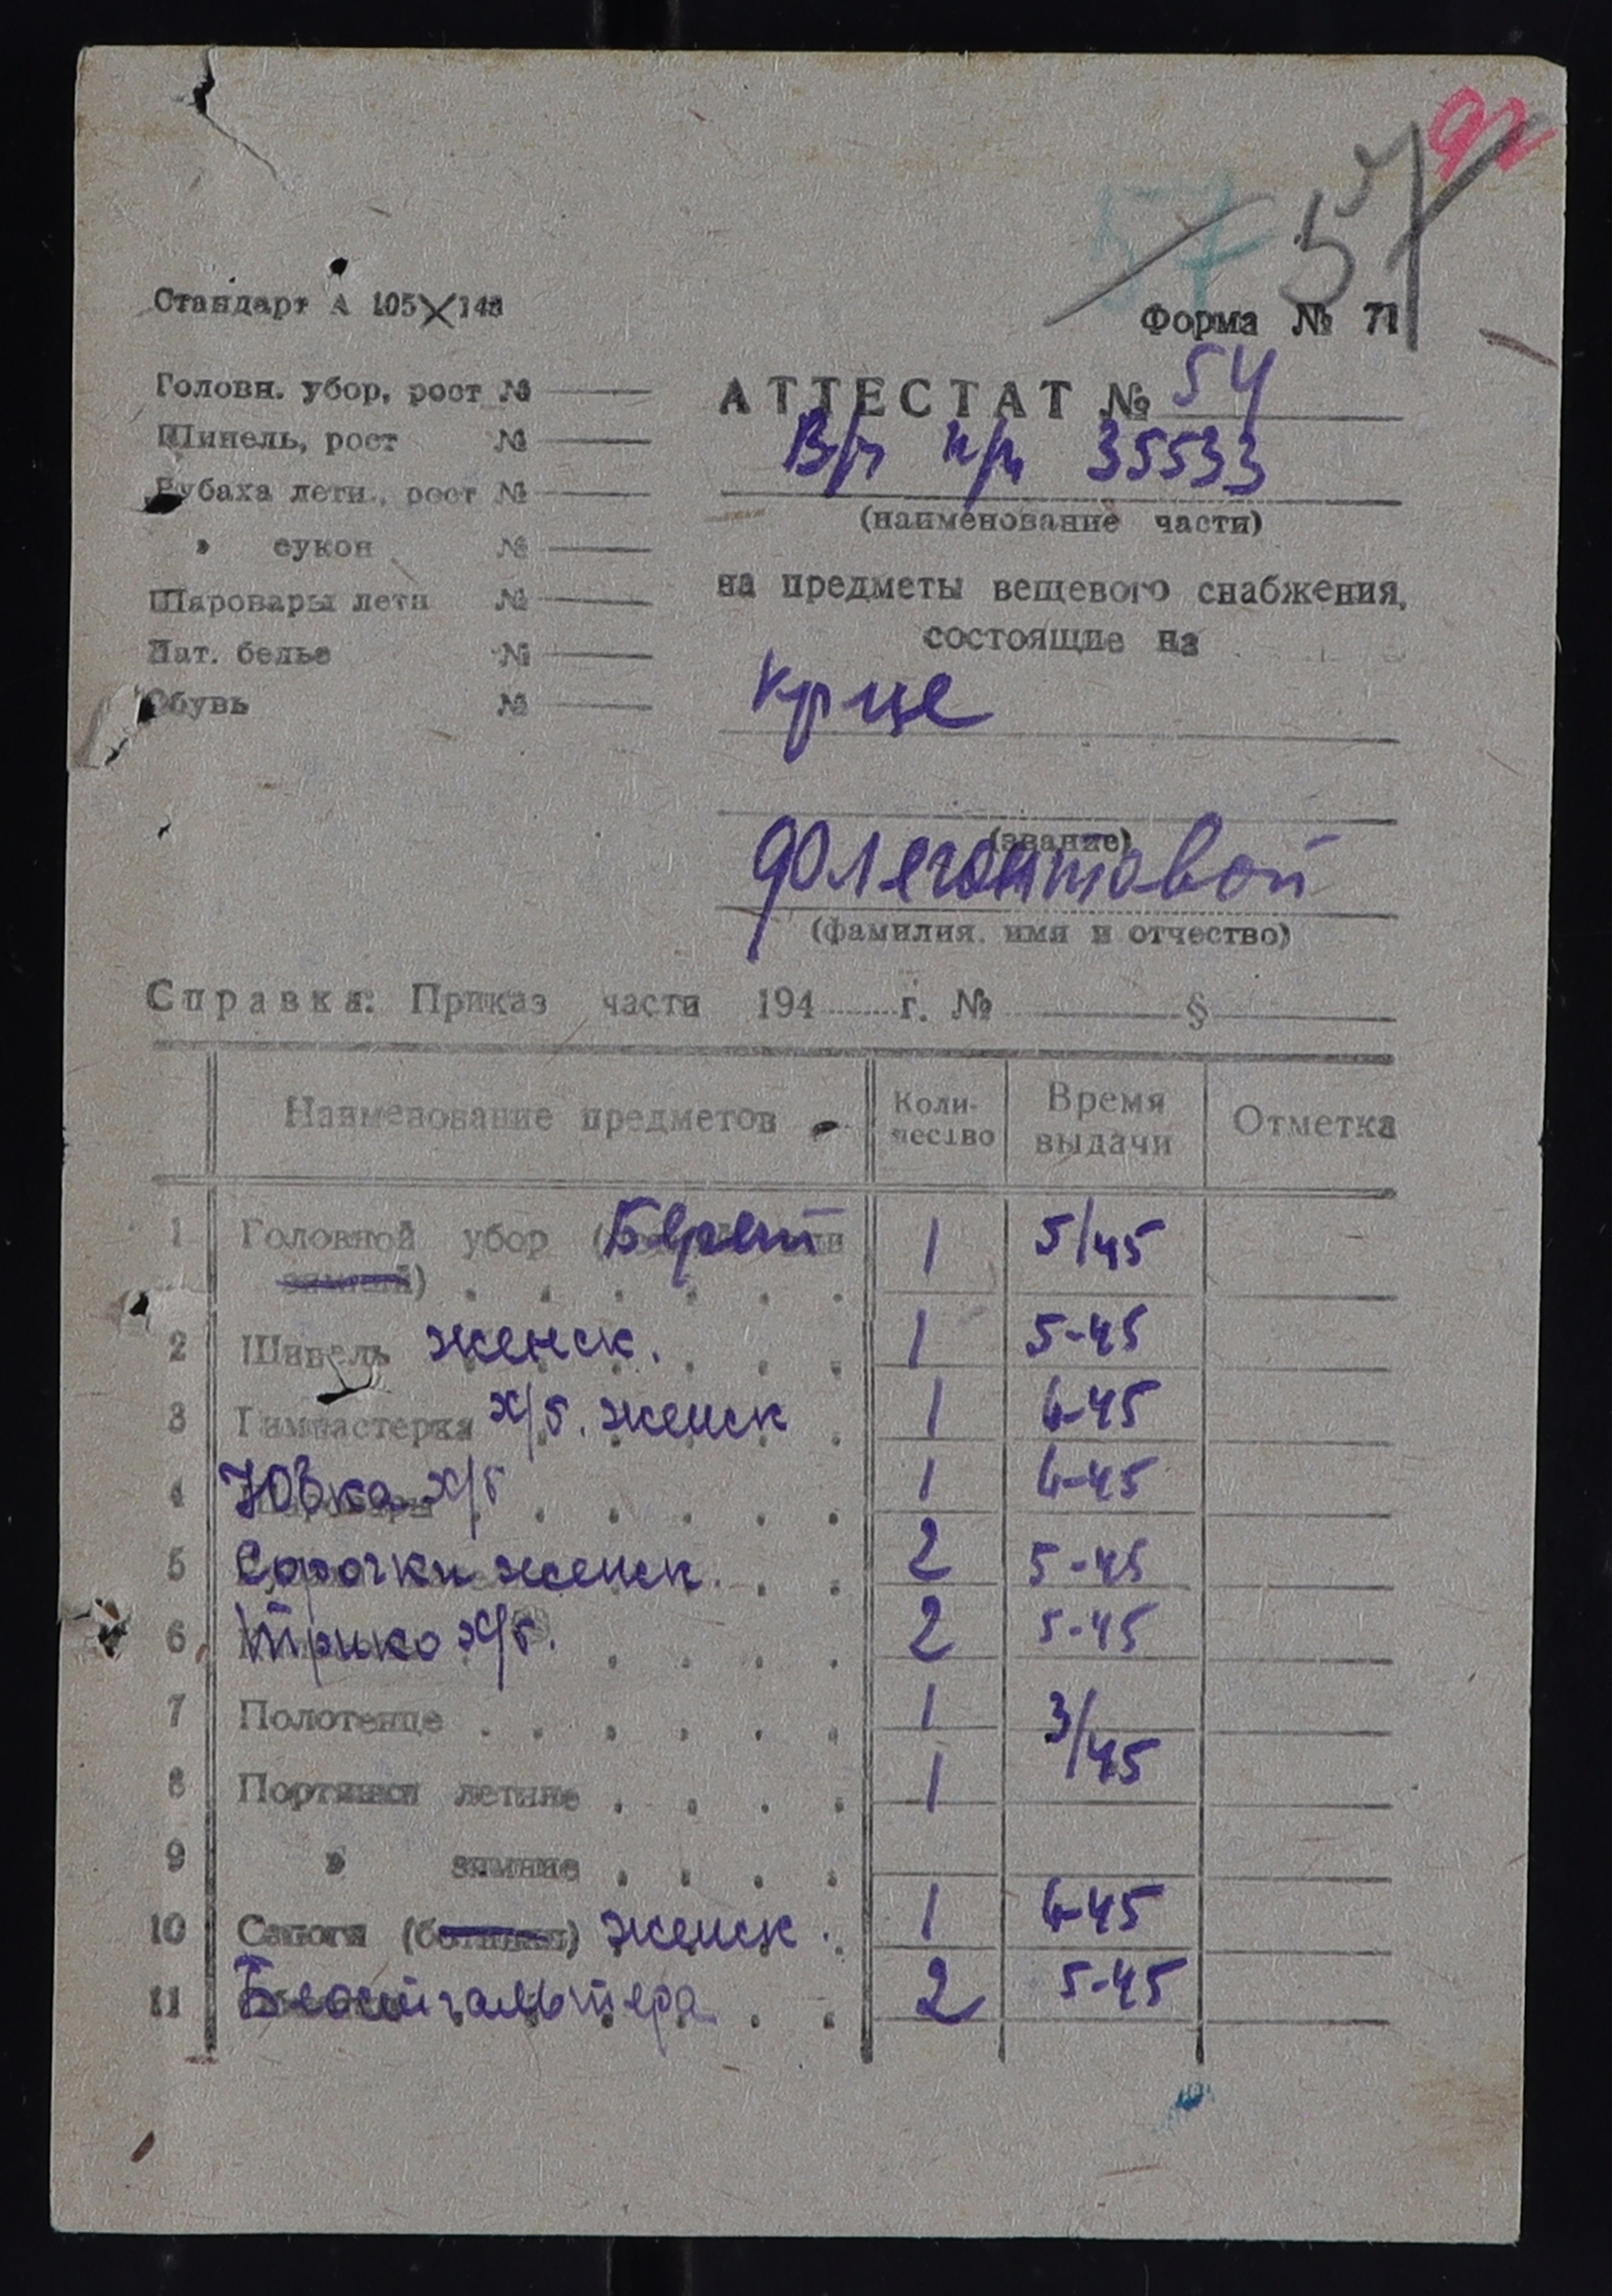 92
57
57
Стандарт А 105×148
Форма № 71
Головн. убор, рост №
Шинель, рост №
Рубаха летн., рост №
» сукон №
Шаровары летн №
Нат. белье №
Обувь №
АТТЕСТАТ № 54
В/ч п/п 35533
(наименование части)
на предметы вещевого снабжения,
состоящие на
кр-це
(звание)
Фолегонтовой
(фамилия, имя и отчество)
Справка: Приказ части 194 г. № §
Наименование предметов Коли-чество Время выдачи Отметка
1 Головной убор ( Берет 1 5/45
зимний)
2 Шинель женск. 1 5-45
3 Гимнастерка х/б. женск 1 4-45
4 Юбка х/б 1 4-45
5 Сорочки женск. 2 5-45
6 Трико х/б. 2 5-45
7 Полотенце 1 3/45
8 Портянки летние 1
9 » зимние
10 Сапоги (ботинки) женск. 1 4-45
11 Бюстгальтера 2 5-45